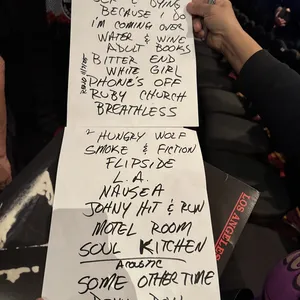 BECAUSE I DO
I'M COMING OVER
WATER & WINE
ADULT BOOKS
BITTER END
WHITE GIRL
PHONE'S OFF
RUBY CHURCH
BREATHLESS
HUNGRY WOLF
SMOKE & FICTION
FLIPSIDE
L.A.
NAUSEA
JOHNY HIT & RUN
MOTEL ROOM
SOUL KITCHEN
ACOUSTIC
SOME OTHER TIME
LOS ANGELES